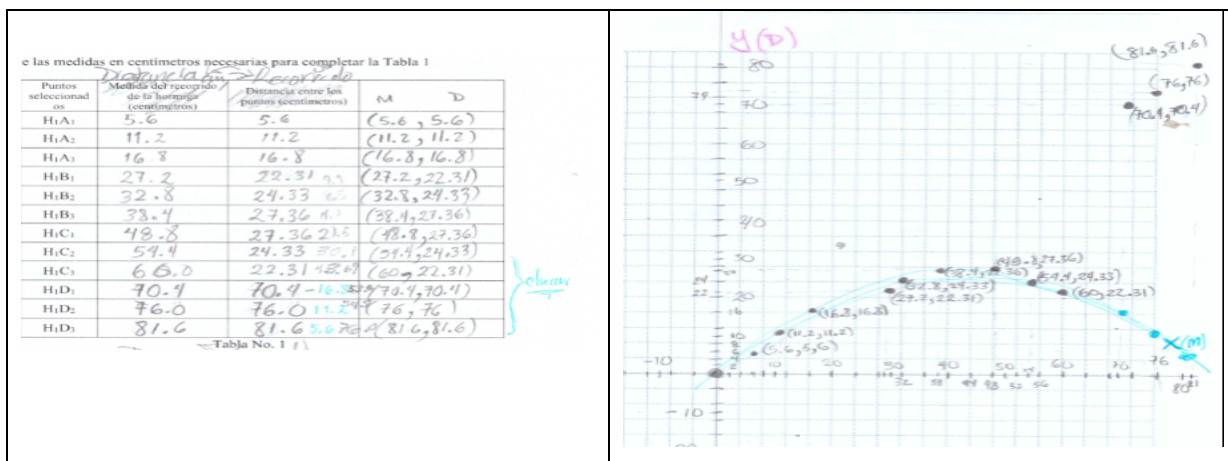 e las medidas en centímetros necesarias para completar la Tabla 1
Distancia Recorrido
Puntos seleccionad os
Medida del recorrido de la hormiga (centímetros)
Distancia entre los puntos (centímetros)
M D
H1A1 5.6 5.6 (5.6, 5.6)
H1A2 11.2 11.2 (11.2, 11.2)
H1A3 16.8 16.8 (16.8, 16.8)
H1B1 27.2 22.31 (27.2, 22.31)
H1B2 32.8 24.33 (32.8, 24.33)
H1B3 38.4 27.36 (38.4, 27.36)
H1C1 48.8 27.36 (48.8, 27.36)
H1C2 54.4 24.33 (54.4, 24.33)
H1C3 60.0 22.31 (60, 22.31)
H1D1 70.4 70.4 -16.8 (70.4, 70.4)
H1D2 76.0 76.0 11.2 (76, 76)
H1D3 81.6 81.6 5.6 (81.6, 81.6)
Tabla No. 1
y(D)
(81.6, 81.6)
80
(76,76)
70
(70.4, 70.4)
60
50
40
30
(48.8, 27.36)
(38.4, 27.36)
(54.4, 24.33)
24
(32.8, 24.33)
22
20
(27.2, 22.31)
(60, 22.31)
16
(16.8, 16.8)
10
(11.2, 11.2)
(5.6, 5,6)
X(m)
-10
10
20
30
32
40
48
50
56
60
70
76
80
-10